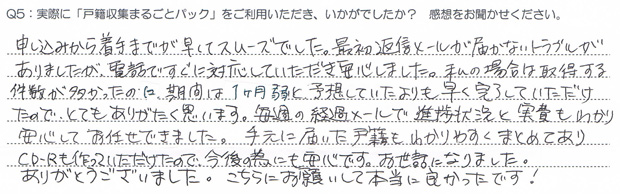 Q5：実際に「戸籍収集まるごとパック」をご利用いただき、いかがでしたか？ 感想をお聞かせください。
申し込みから着手までが早くてスムーズでした。最初返信メールが届かないトラブルが
ありましたが、電話ですぐに対応していただき安心しました。私の場合は取得する
件数が多かったのに、期間は1ヶ月弱と予想していたよりも早く完了していただけ
たので、とてもありがたく思います。毎週の経過メールで進捗状況と実費もわかり
安心してお任せできました。手元に届いた戸籍もわかりやすくまとめてあり
CD-Rも作っていただけたので、今後の為にも安心です。お世話になりました。
ありがとうございました。こちらにお願いして本当に良かったです！